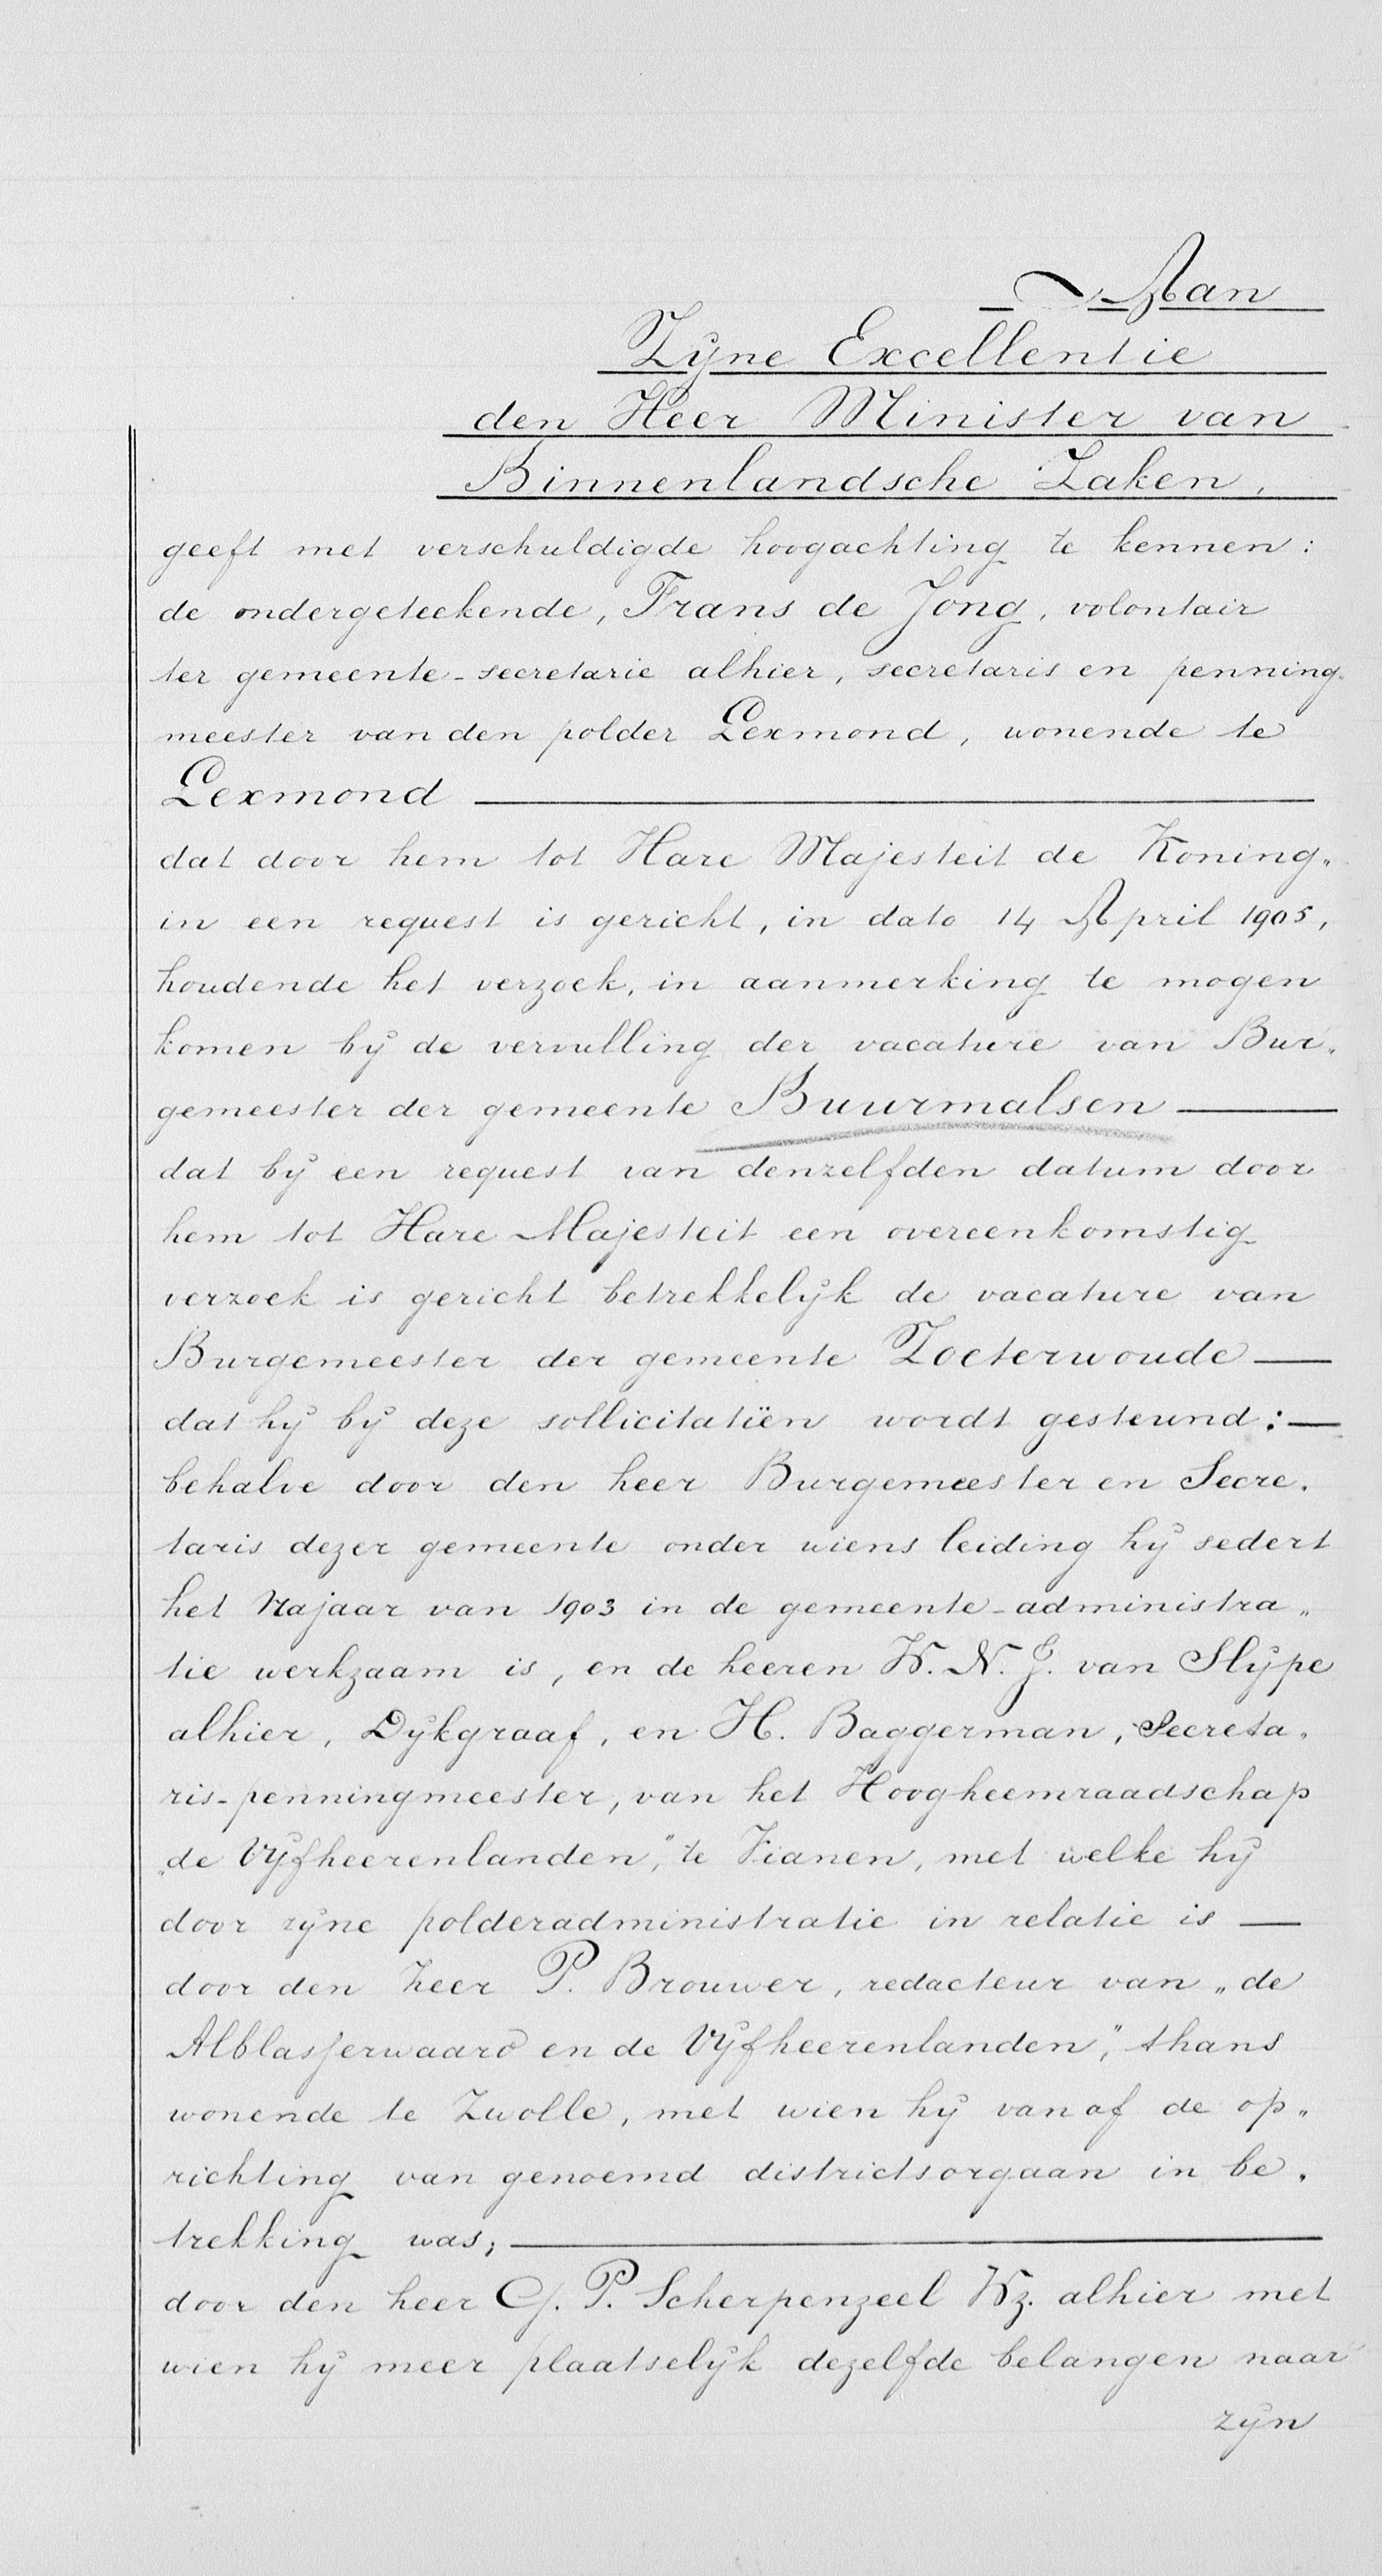 Aan
Zijne Excellentie
den Heer Minister van
Binnenlandsche Zaken,
geeft met verschuldigde hoogachting te kennen:
de ondergeteekende, Frans de Jong, volontair
ter gemeente-secretarie alhier, secretaris en penning„
meester van den polder Lexmond, wonende te
Lexmond
dat door hem tot Hare Majesteit de Koning„
in een request is gericht, in dato 14 April 1905,
houdende het verzoek, in aanmerking te mogen
komen bij de vervulling der vacature van Bur„
gemeester der gemeente Buurmalsen
dat bij een request van denzelfden datum door
hem tot Hare Majesteit een overeenkomstig
verzoek is gericht betrekkelijk de vacature van
Burgemeester der gemeente Zoeterwoude
dat hij bij deze sollicitatiën wordt gesteund:
behalve door den heer Burgemeester en Secre„
taris dezer gemeente onder wiens leiding hij sedert
het Najaar van 1903 in de gemeente-administra„
tie werkzaam is, en de heeren W. N. G. van Slijpe
alhier, Dijkgraaf, en H. Baggerman, Secreta„
ris-penningmeester, van het Hoogheemraadschap
„de Vijfheerenlanden", te Vianen, met welke hij
door zijne polderadministratie in relatie is
door den heer P. Brouwer, redacteur van „de
Alblasserwaard en de Vijfheerenlanden", thans
wonende te Zwolle, met wien hij vanaf de op„
richting van genoemd districtsorgaan in be„
trekking was;
door den heer G. P. Scherpenzeel Wz. alhier met
wien hij meer plaatselijk dezelfde belangen naar
zijn